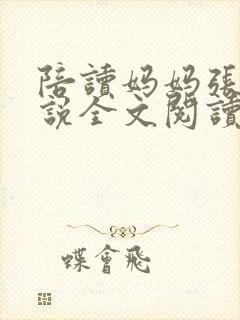 陪讀妈妈張
說全文閱讀
蝶會飛